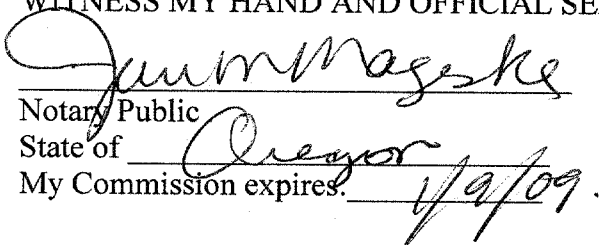 WITNESS MY HAND AND OFFICIAL SE
Mageske
Notary Public
State of Oregon
My Commission expires: 1/9/09.